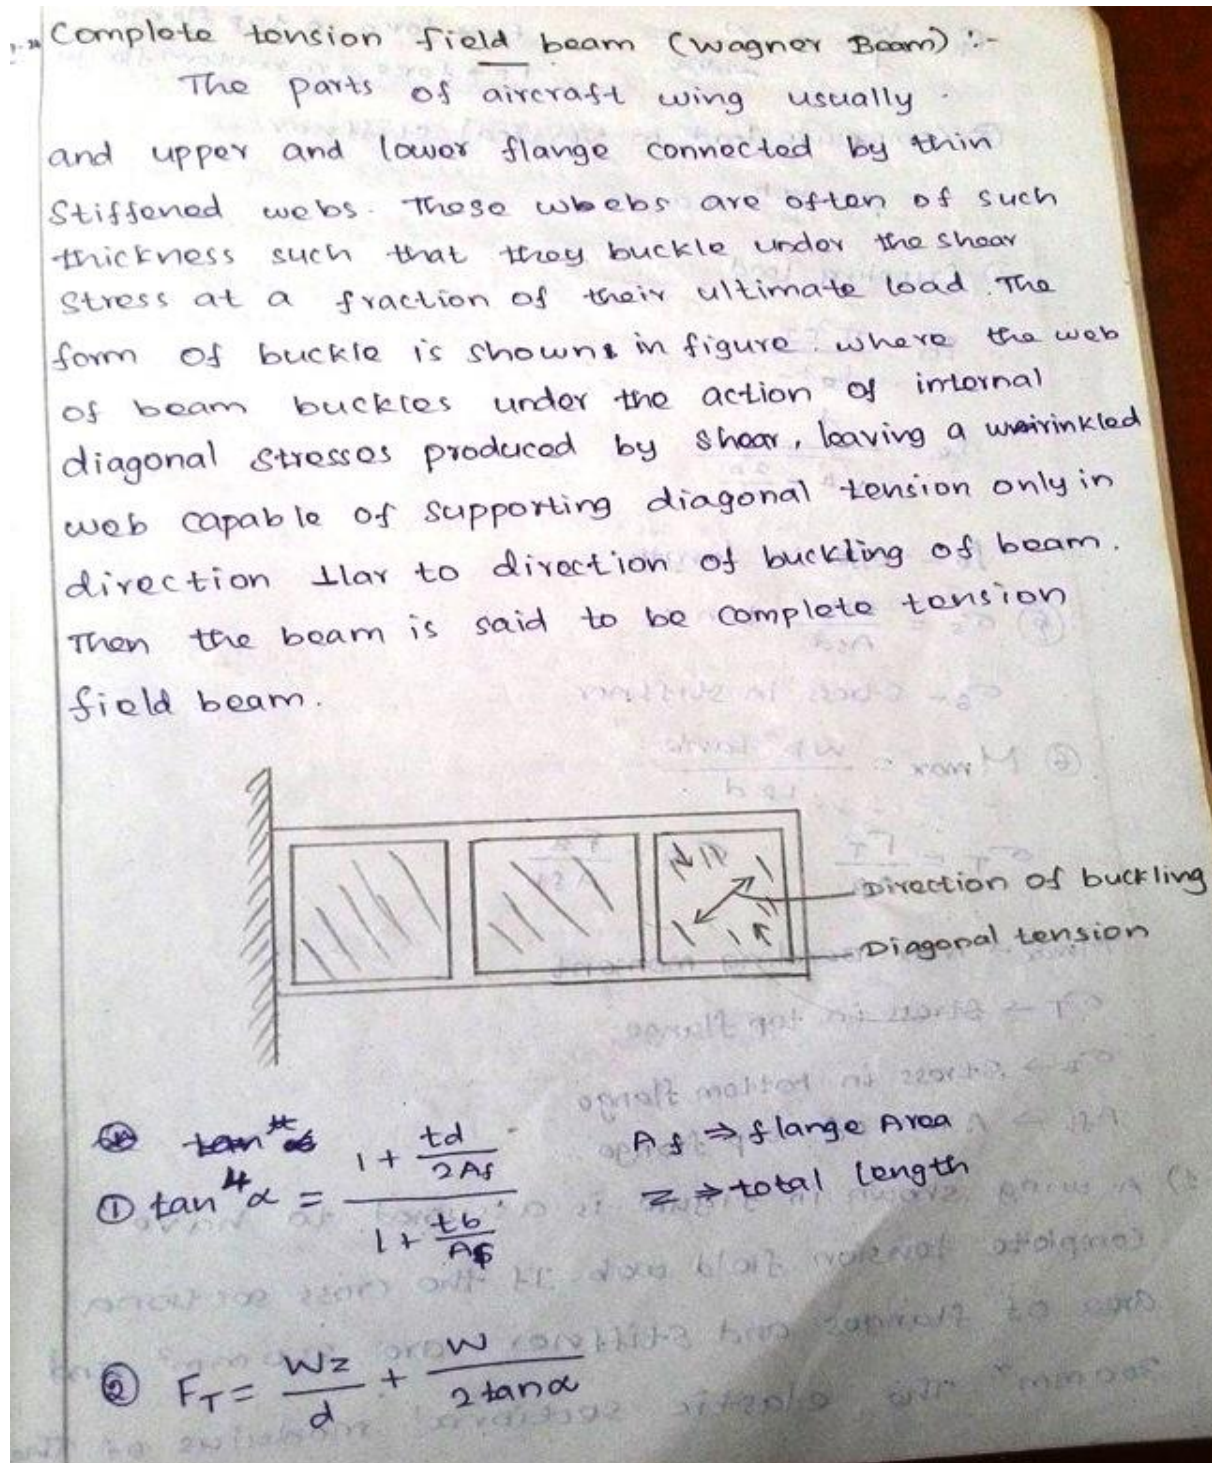 Complete tension field beam (Wagner Beam) :-
The parts of aircraft wing usually
and upper and lower flange connected by thin
Stiffened webs. These wbebs are often of such
thickness such that they buckle under the shear
Stress at a fraction of their ultimate load. The
form of buckle is shown in figure. where the web
of beam buckles under the action of internal
diagonal stresses produced by shear, leaving a wririnkled
web capable of supporting diagonal tension only in
direction ⊥lar to direction of buckling of beam.
Then the beam is said to be complete tension
field beam.
Direction of buckling
Diagonal tension
① tan⁴α = (1 + td/2Af) / (1 + tb/AS)
Af ⇒ flange Area
Z ⇒ total length
② F_T = Wz/d + W/2tanα